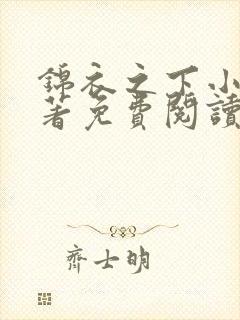 錦衣之下小
著免費閱讀
齊士明